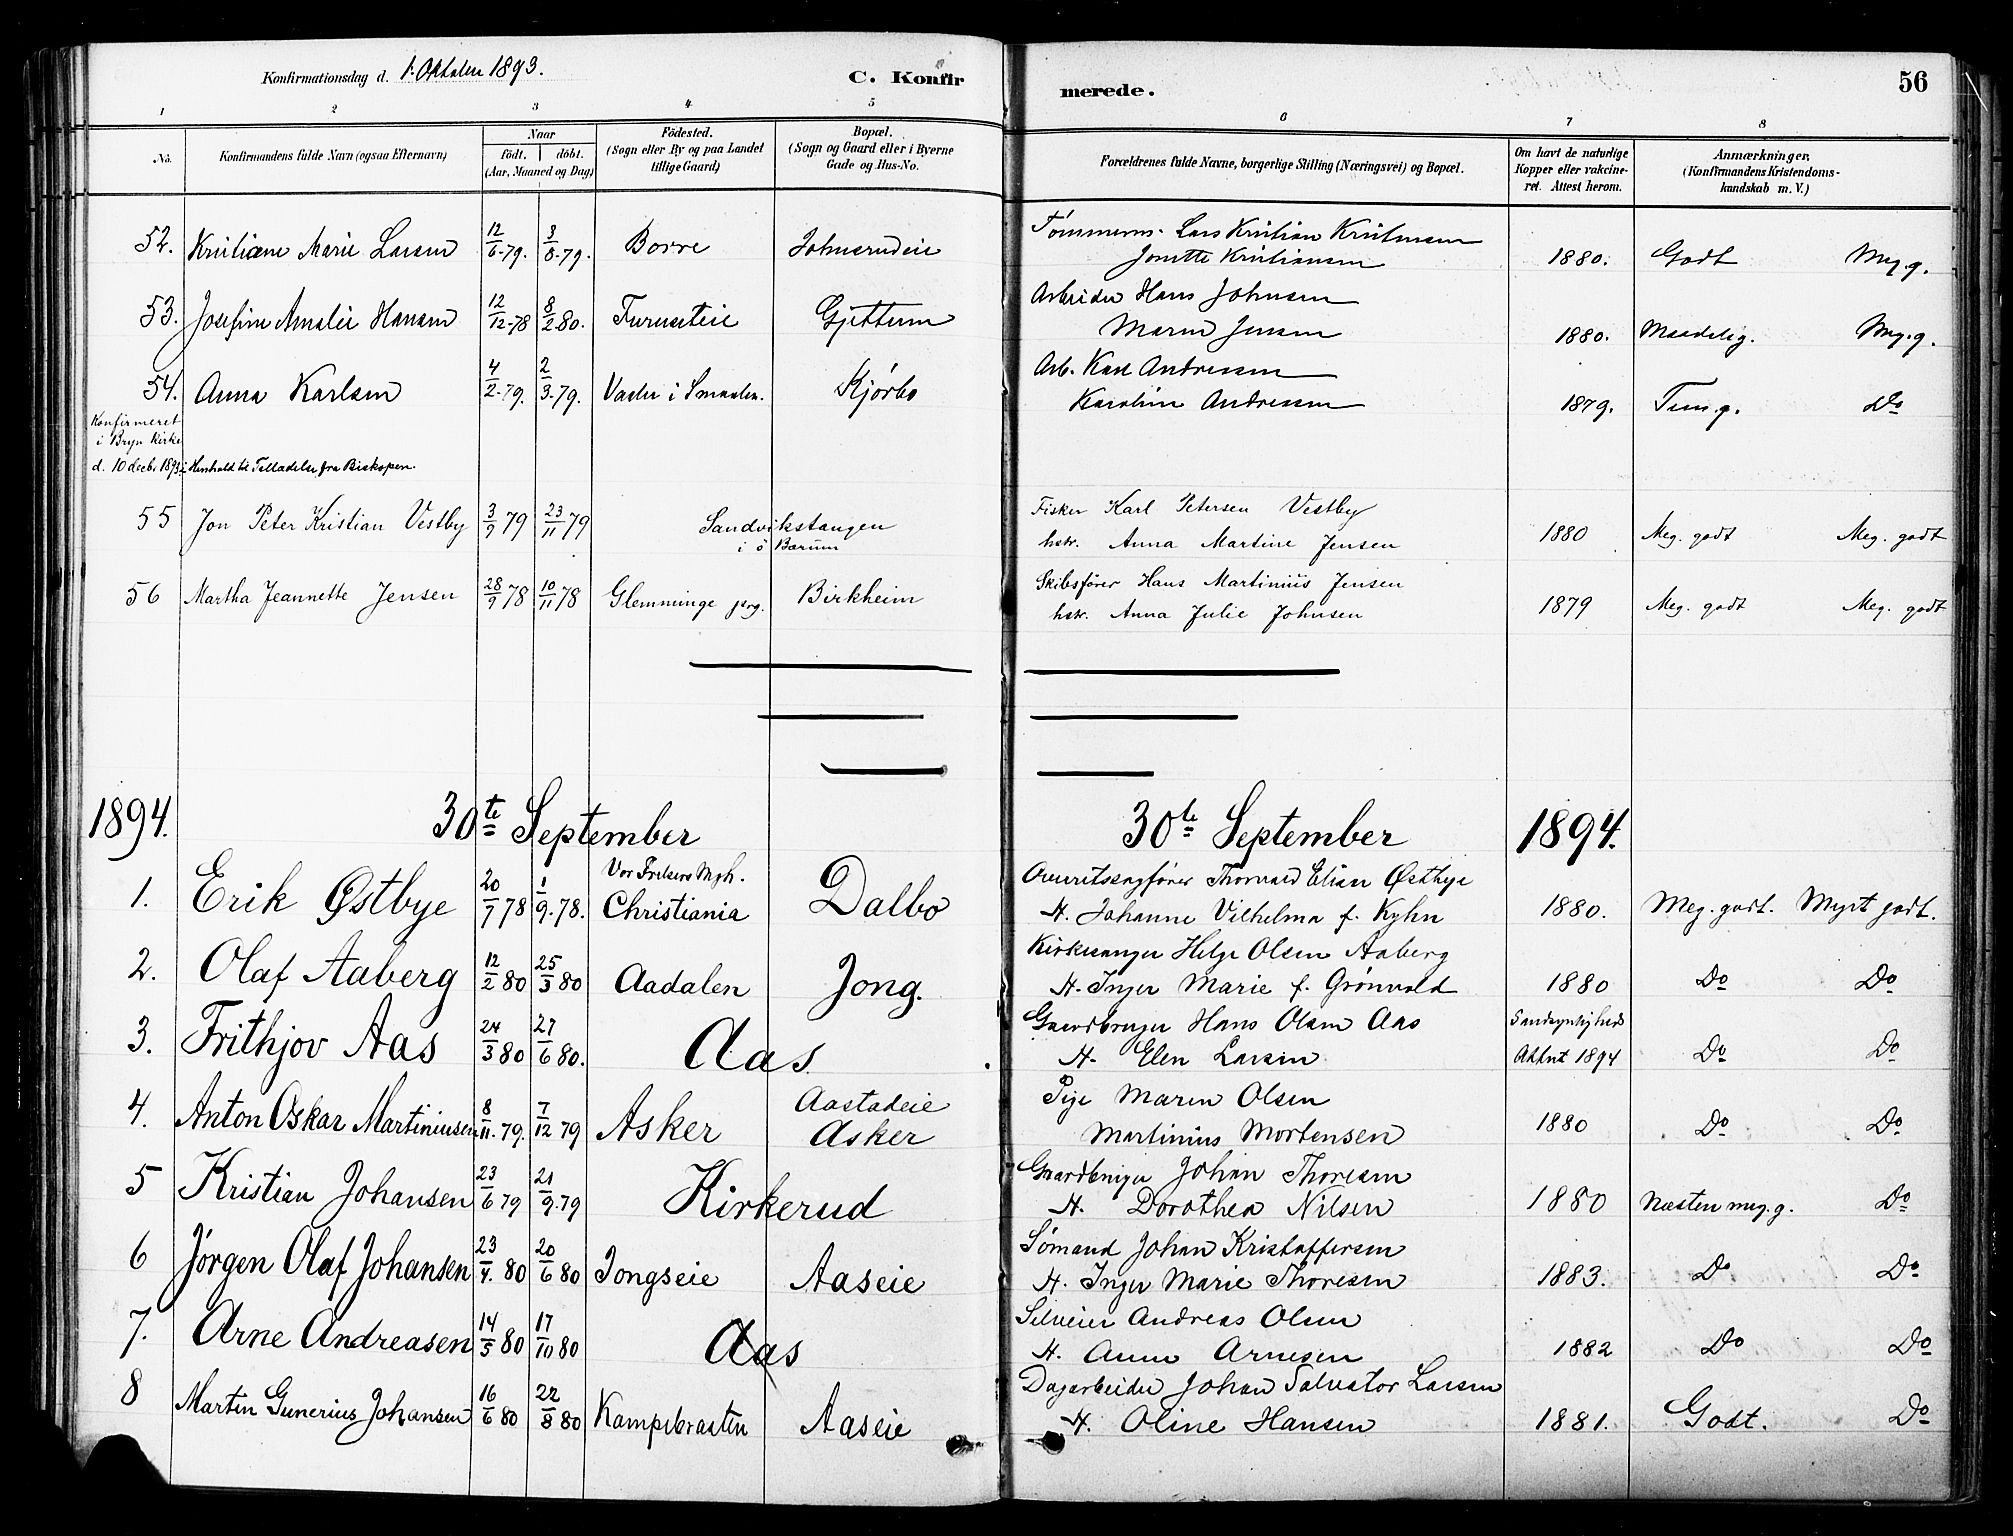 Konfirmationsdag d. 1. Oktober 1893.
C. Konfir
merede.
56
1 2 3 4 5 6 7 8
No. Konfirmandens fulde Navn (ogsaa Efternavn) Naar födt. döbt. (Aar, Maaned og Dag) Födested. (Sogn eller By og paa Landet tillige Gaard) Bopæl. (Sogn og Gaard eller i Byerne Gade og Hus-No. Forældrenes fulde Navne, borgerlige Stilling (Næringsvei) og Bopæl. Om havt de naturlige Kopper eller vakcineret. Attest herom. Anmærkninger, (Konfirmandens Kristendomskundskab m. V.)
52. Kristiane Marie Larsen 12/6-79. 3/8-79. Borre Johnsrudeie Tømmerm. Lars Kristian Kristiansen
Jonette Kristiansen 1880. Godt Meg.g.
53. Josefine Amalie Hansen 12/12-78 8/2 80. Furuseteie Gjettum Arbeider Hans Johnsen
Maren Jensen 1880. Maadelig. Meg.g.
54. Anna Karlsen 4/2-79. 2/3-79. Vaaler i Smaalen. Kjørbo Arb. Karl Andresen
Karoline Andresen 1879. Tem.g. Do
Konfirmeret
i Bryn Kirke
d. 10 decbr 1893 i Henhold til Tilladelse fra Biskopen.
55 Jon Peter Kristian Vestby 3/9 79 23/11 79 Sandvikstangen Fisker Karl Petersen Vestby
i ö Bærum hstr. Anna Martine Jensen 1880 Meg. godt Meg. godt
56 Martha Jeannette Jensen 28/9 78 10/11 78 Glemminge prg. Birkheim Skibsfører Hans Martinius Jensen
hstr. Anna Julie Johnsen 1879 Meg. godt Meg. godt
1894. 30te September 30te September 1894.
1. Erik Østbye 20/7 78 1/9.78. Vor Frelsers Mgh. Christiania Dalbo Overretssagfører Thorvald Elian Østbye
H. Johanne Vilhelma f. Kyhn 1880. Meg. godt. Myet godt.
2. Olaf Aaberg 12/2 80 25/3 80 Aadalen Jong. Kirkesanger Helge Olsen Aaberg
H. Inger Marie f. Grönvold 1880 Do Do
3. Frithjov Aas 24/3 80 27/6 80. Aas Gaardbruger Hans Olsen Aas
H. Elen Larsen Sandsynligheds Attest 1894 Do Do
4. Anton Oskar Martiniusen 8/11.79. 7/12 79 Asker Aastadeie Asker Pige Maren Olsen
Martinius Mortensen 1880 Do Do
5 Kristian Johansen 23/6 79 21/9.79 Kirkerud Gaardbruger Johan Thoresen
H. Dorothea Nilsen 1880 Næsten meg.g. Do
6 Jörgen Olaf Johansen 23/4. 80 20/6 80 Jongseie Aaseie Sömand Johan Kristoffersen
H. Inger Marie Thoresen 1883. Do Do
7. Arne Andreasen 14/5 80 17/10 80 Aas Selveier Andreas Olsen
H. Anne Arnesen 1882 Do Do
8 Martin Gunerius Johansen 16/6 80 22/8 80 Kampebraaten Aaseie Dagarbeider Johan Salvator Larsen
H. Oline Hansen 1881. Godt. Do